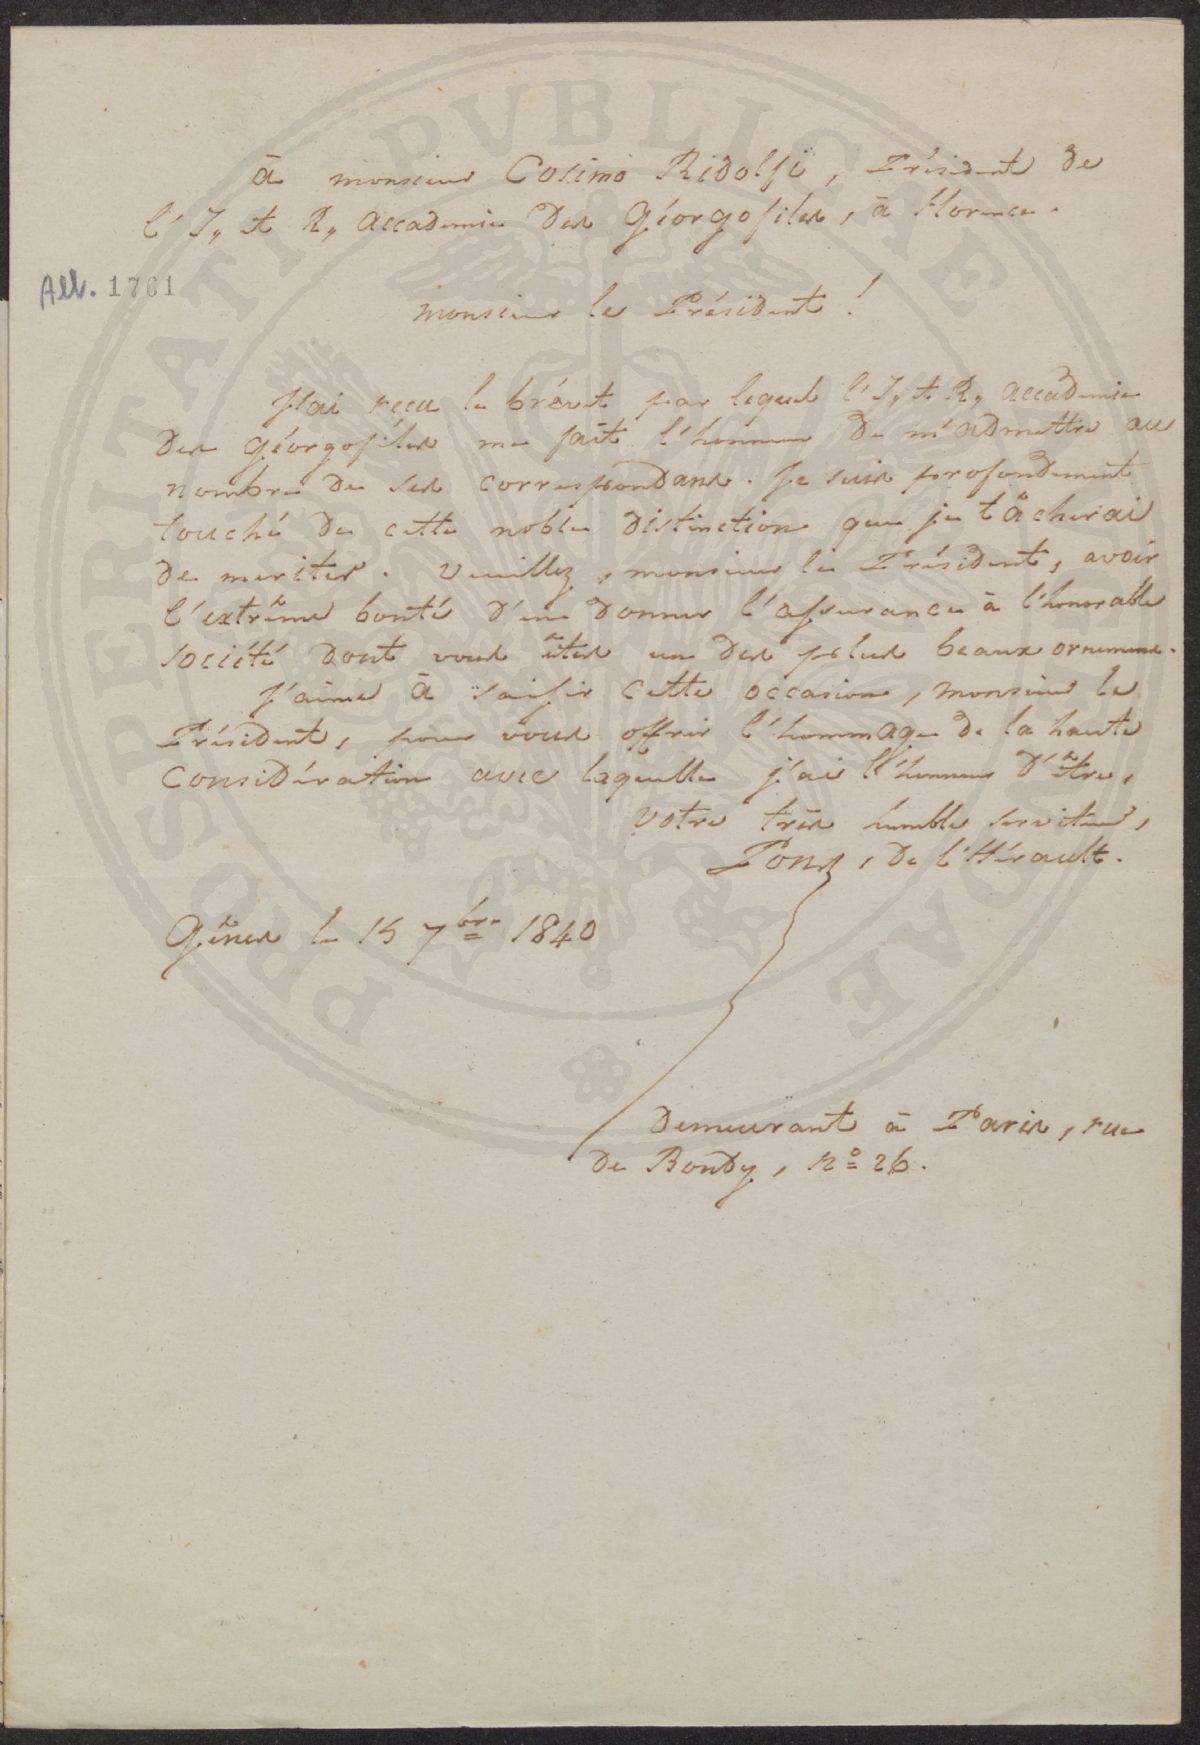 à monsieur Cosimo Ridolfi, Président de
l'I, et R, Accademie des Géorgofiles, à Florence.
All. 1761
Monsieur le Président!
J'ai reçu le brévet par lequel l'I, et R, Accademie
des Géorgofiles me fait l'honneur de m'admettre au
nombre de ses correspondans. Je suis profondement
touché de cette noble distinction que je tâcherai
de meriter. Veuillez, monsieur le Président, avoir
l'extrême bonté d'en donner l'assurance à l'honorable
société dont vous êtes un des plus beaux ornemens.
J'aime à saisir cette occasion, monsieur le
Président, pour vous offrir l'hommage de la haute
considération avec laquelle j'ai l'honneur d'être,
votre très humble serviteur,
Pons, de l'Hérault.
Gênes le 15 7bre 1840
Demeurant à Paris, rue
de Bondy, nº 26.
PROSPERITATI PVBLICAE AVGENDAE